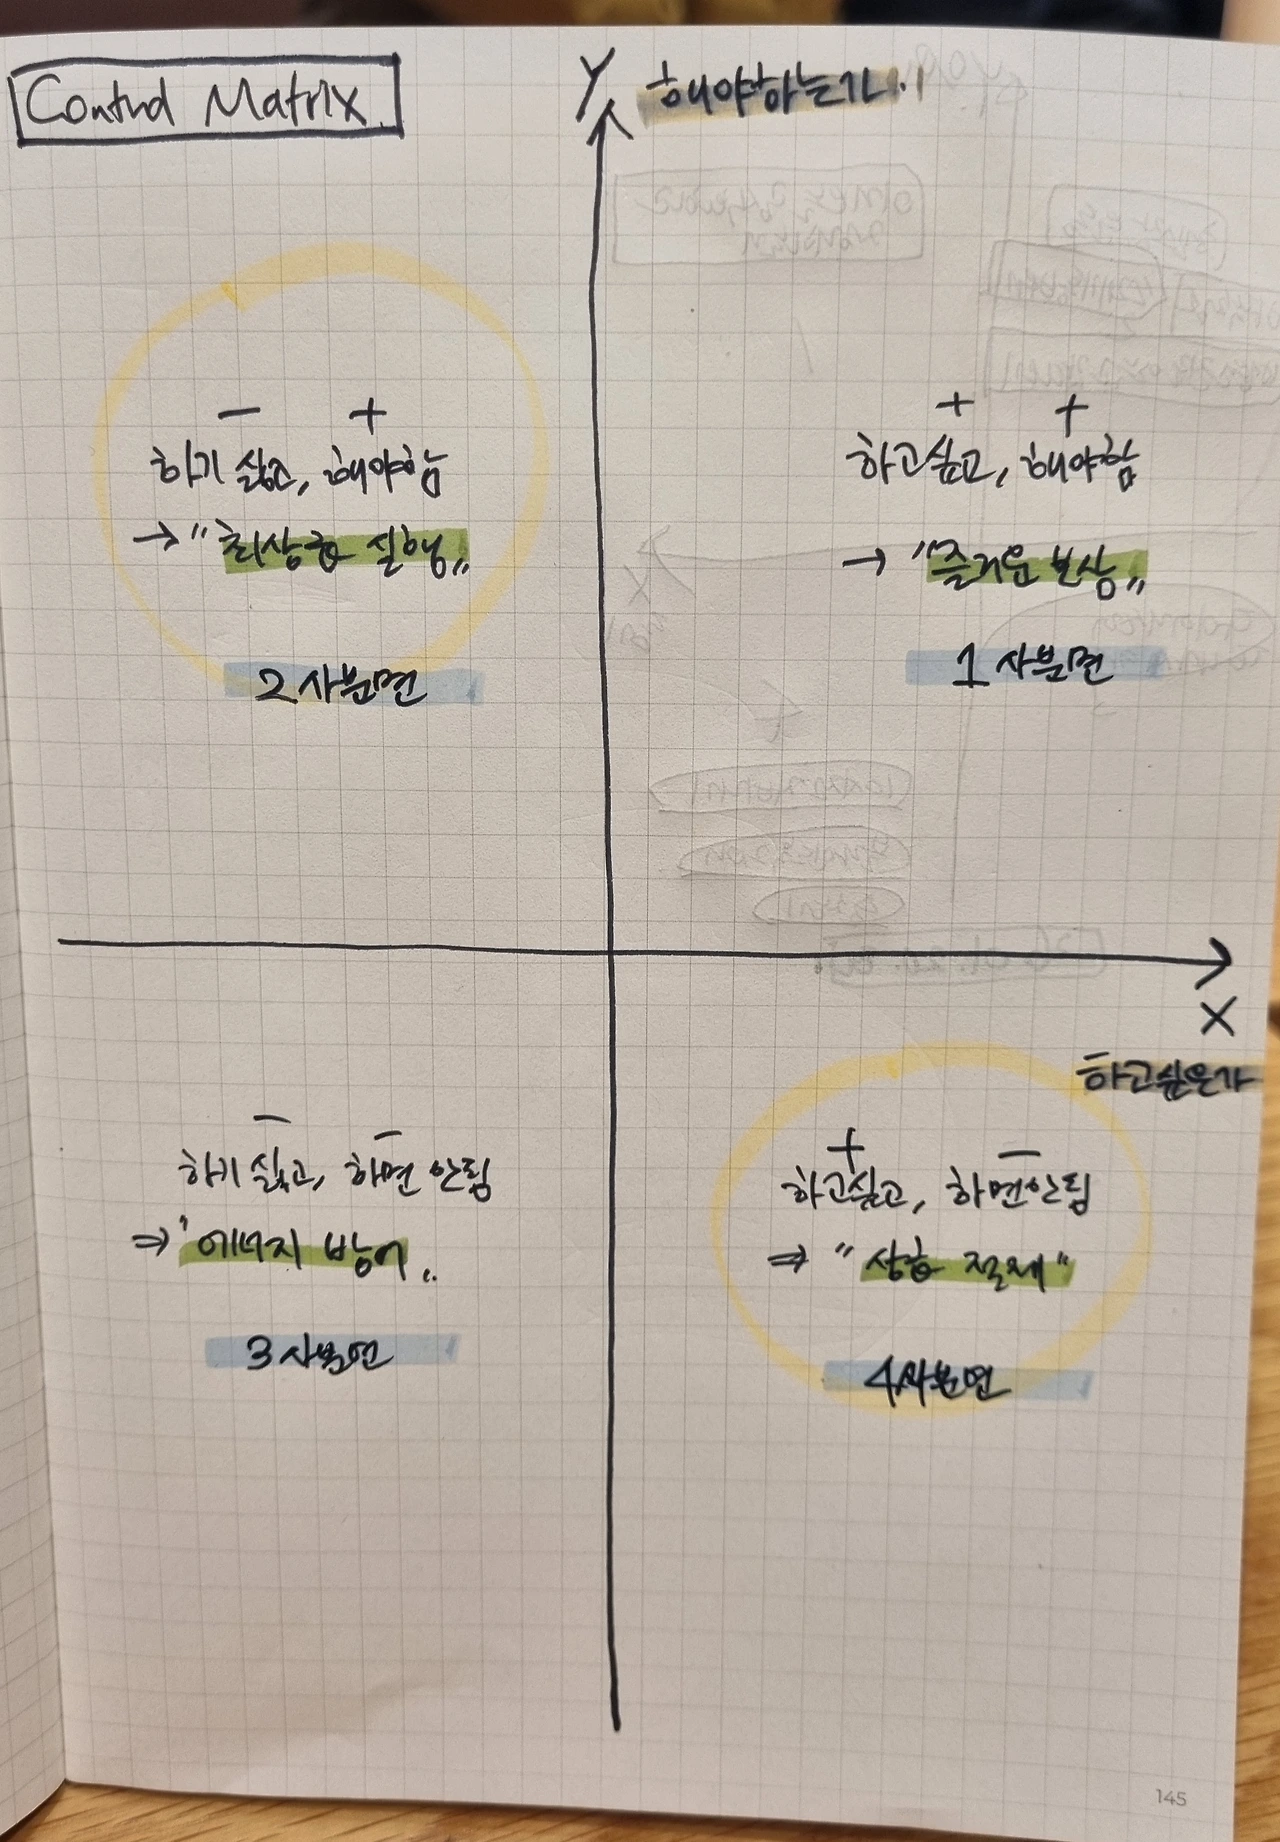 Control Matrix
Y 해야하는가
- +
하기 싫고, 해야함
→ "최상급 실행"
2사분면
+ +
하고싶고, 해야함
→ "즐거운 보상"
1사분면
X
하고싶은가
- -
하기 싫고, 하면 안됨
⇒ "에너지 방어"
3사분면
+ -
하고싶고, 하면안됨
⇒ "상급 절제"
4사분면
145